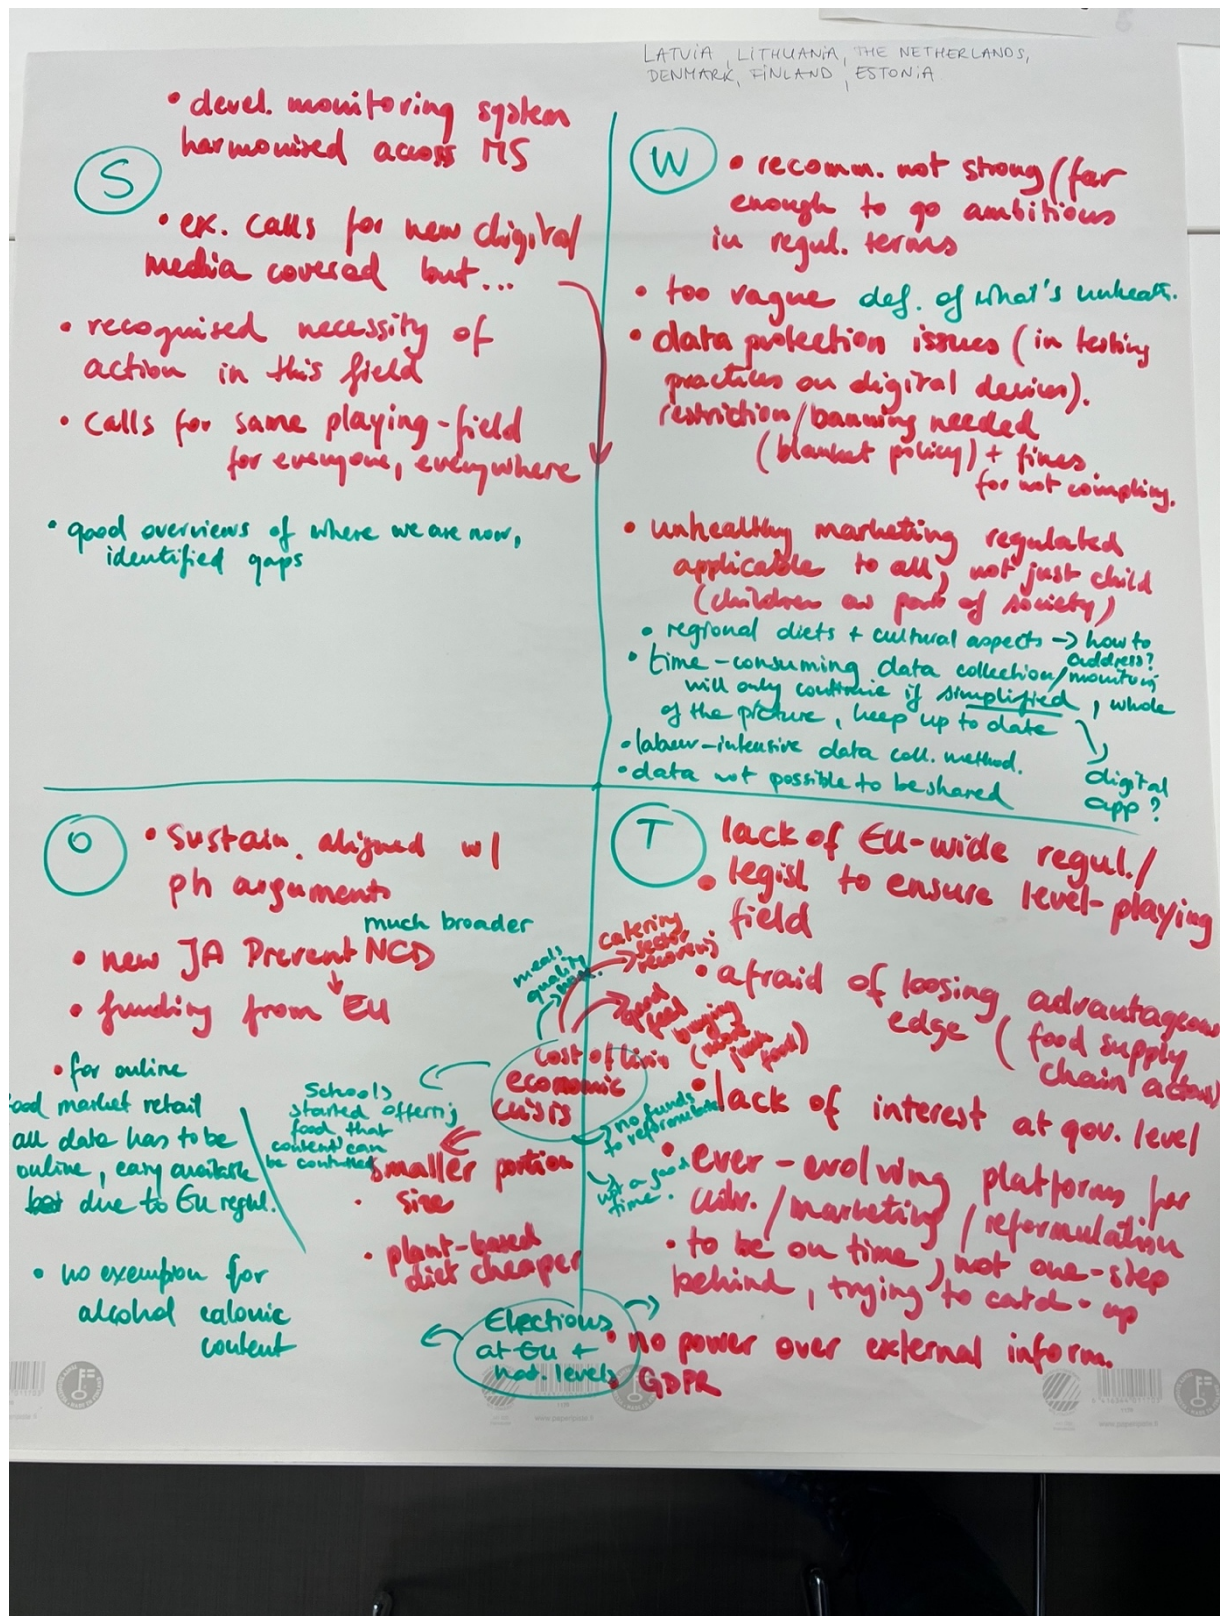 LATVIA, LITHUANIA, THE NETHERLANDS,
DENMARK, FINLAND, ESTONIA
S
• devel. monitoring system
harmonised across MS
• ex. calls for new digital
media covered but...
• recognised necessity of
action in this field
• calls for same playing-field
for everyone, everywhere
• good overviews of where we are now,
identified gaps
W
• recomm. not strong (far
enough to go ambitious
in regul. terms
• too vague def. of what's unhealth.
• data protection issues (in testing
practices on digital devices).
restriction/banning needed
(blanket policy) + fines
for not compling.
• unhealthy marketing regulated
applicable to all, not just child
(children as part of society)
• regional diets + cultural aspects → how to
address?
• time-consuming data collection/monitoring
will only continue if simplified, whole
of the picture, keep up to date
• labour-intensive data coll. method.
• data not possible to be shared
digital
app?
O
• sustain. aligned w/
ph arguments
much broader
• new JA Prevent NCD
• funding from EU
• for online
food market retail
all data has to be
online, easy available
due to EU regul.
• no exemption for
alcohol caloric
content
Schools
started offering
food that
content can
be controlled
smaller portion
• size
• plant-based
diet cheaper
meals
quality
cost of livin
economic
crisis
catering
sector
recovering
no funds
to reformulate
not a good
time.
Elections
at EU +
nat. levels
T
lack of EU-wide regul./
• legisl. to ensure level-playing
field
• afraid of loosing advantageous
edge (food supply
chain actors)
• lack of interest at gov. level
• ever-evolving platforms for
/marketing/reformulation
• to be on time, not one-step
behind, trying to catch-up
• no power over external inform.
• GDPR